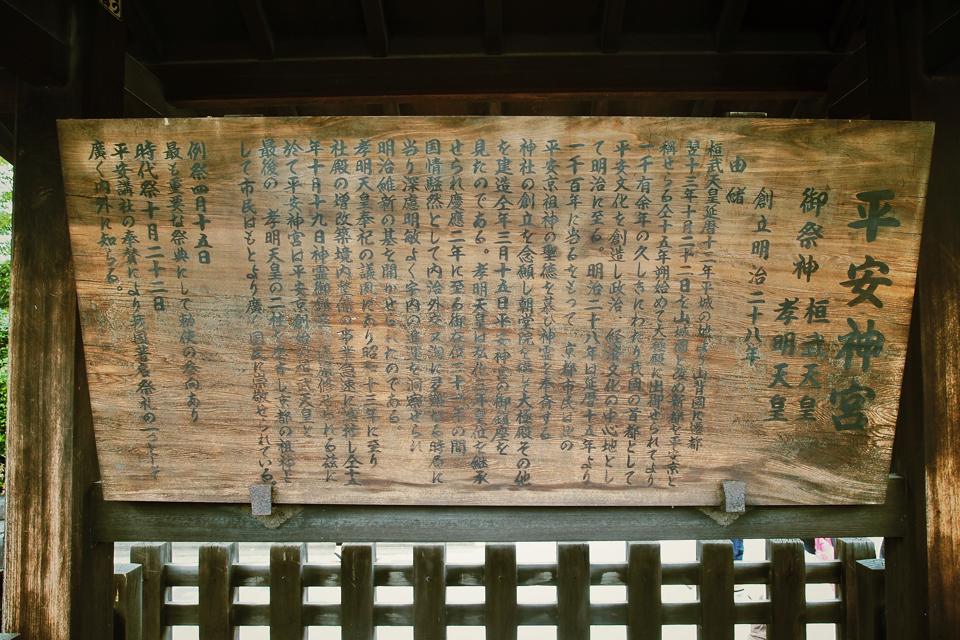 平安神宮
御祭神 桓武天皇
孝明天皇
創立明治二十八年
由緒
桓武天皇延暦十二年平城の地より山背国に遷都
十三年十月二十二日を山城国と名の新都を平安京と
称せらる仝十五年始めて大極殿に出御せられてより
一千有余年の久しきにわたり我国の首都として
平安文化を創造し政治 経済文化の中心地とし
て明治に至る。明治二十八年は延暦十五年より
一千百年に当るをもって 京都市民は
平安京祖神の聖徳を慕い神霊を奉斎する
神社の創立を念願し朝堂院を模し大極殿その他
を建造仝年三月十五日平安神宮の御鎮座を
見たのである。孝明天皇は弘化三年皇位を継承
せられ慶應二年に至る御在位二十一年の間
国情騒然として内治外交又洵に多難なる時局に
当り深慮明敏よく宇内の進運を洞察せられ
明治維新の基を開かせられたのである
孝明天皇奉祀の議国にあり昭和十三年に至り
社殿の増改築境内整備の事業急速に進捗し仝十五
年十月十九日神霊御鎮座 せられる茲に
於て平安神宮は平安京創始の桓武天皇と
最後の 孝明天皇の二柱を奉斎し京都の祖神と
して市民はもとより廣く国民に崇敬せられている
例祭四月十五日
最も重要な祭典にして勅使の参向あり
時代祭十月二十二日
平安講社の奉賛により我国著名祭礼の一つとして
廣く内外に知らる。